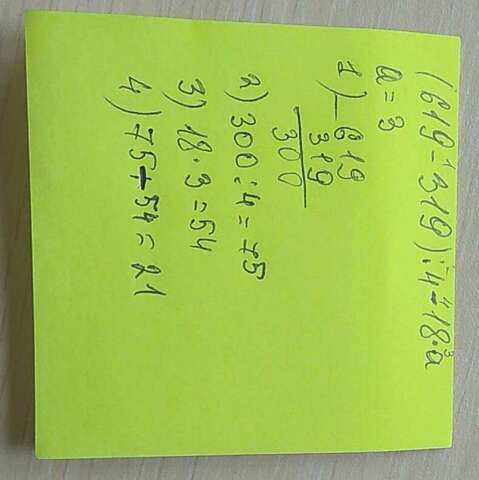 (619-319):4-18·a
a=3
1) _619
319
300
2) 300:4=75
3) 18·3=54
4) 75-54=21